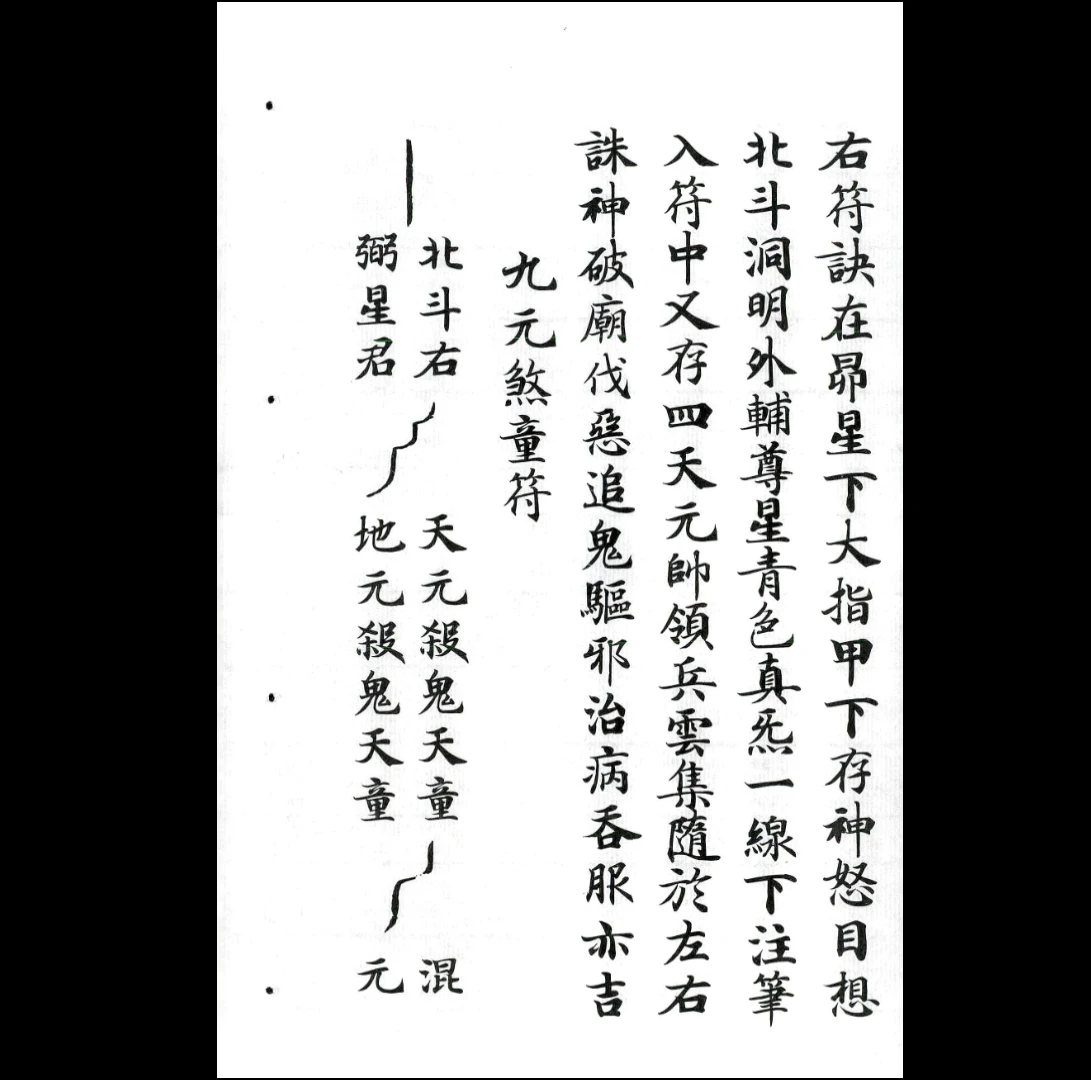 右符訣在昴星下大指甲下存神怒目想
北斗洞明外輔尊星青色真炁一線下注筆
入符中又存四天元帥領兵雲集隨於左右
誅神破廟伐惡追鬼驅邪治病吞服亦吉
九元煞童符
北斗右
弼星君
天元殺鬼天童
地元殺鬼天童
混
元